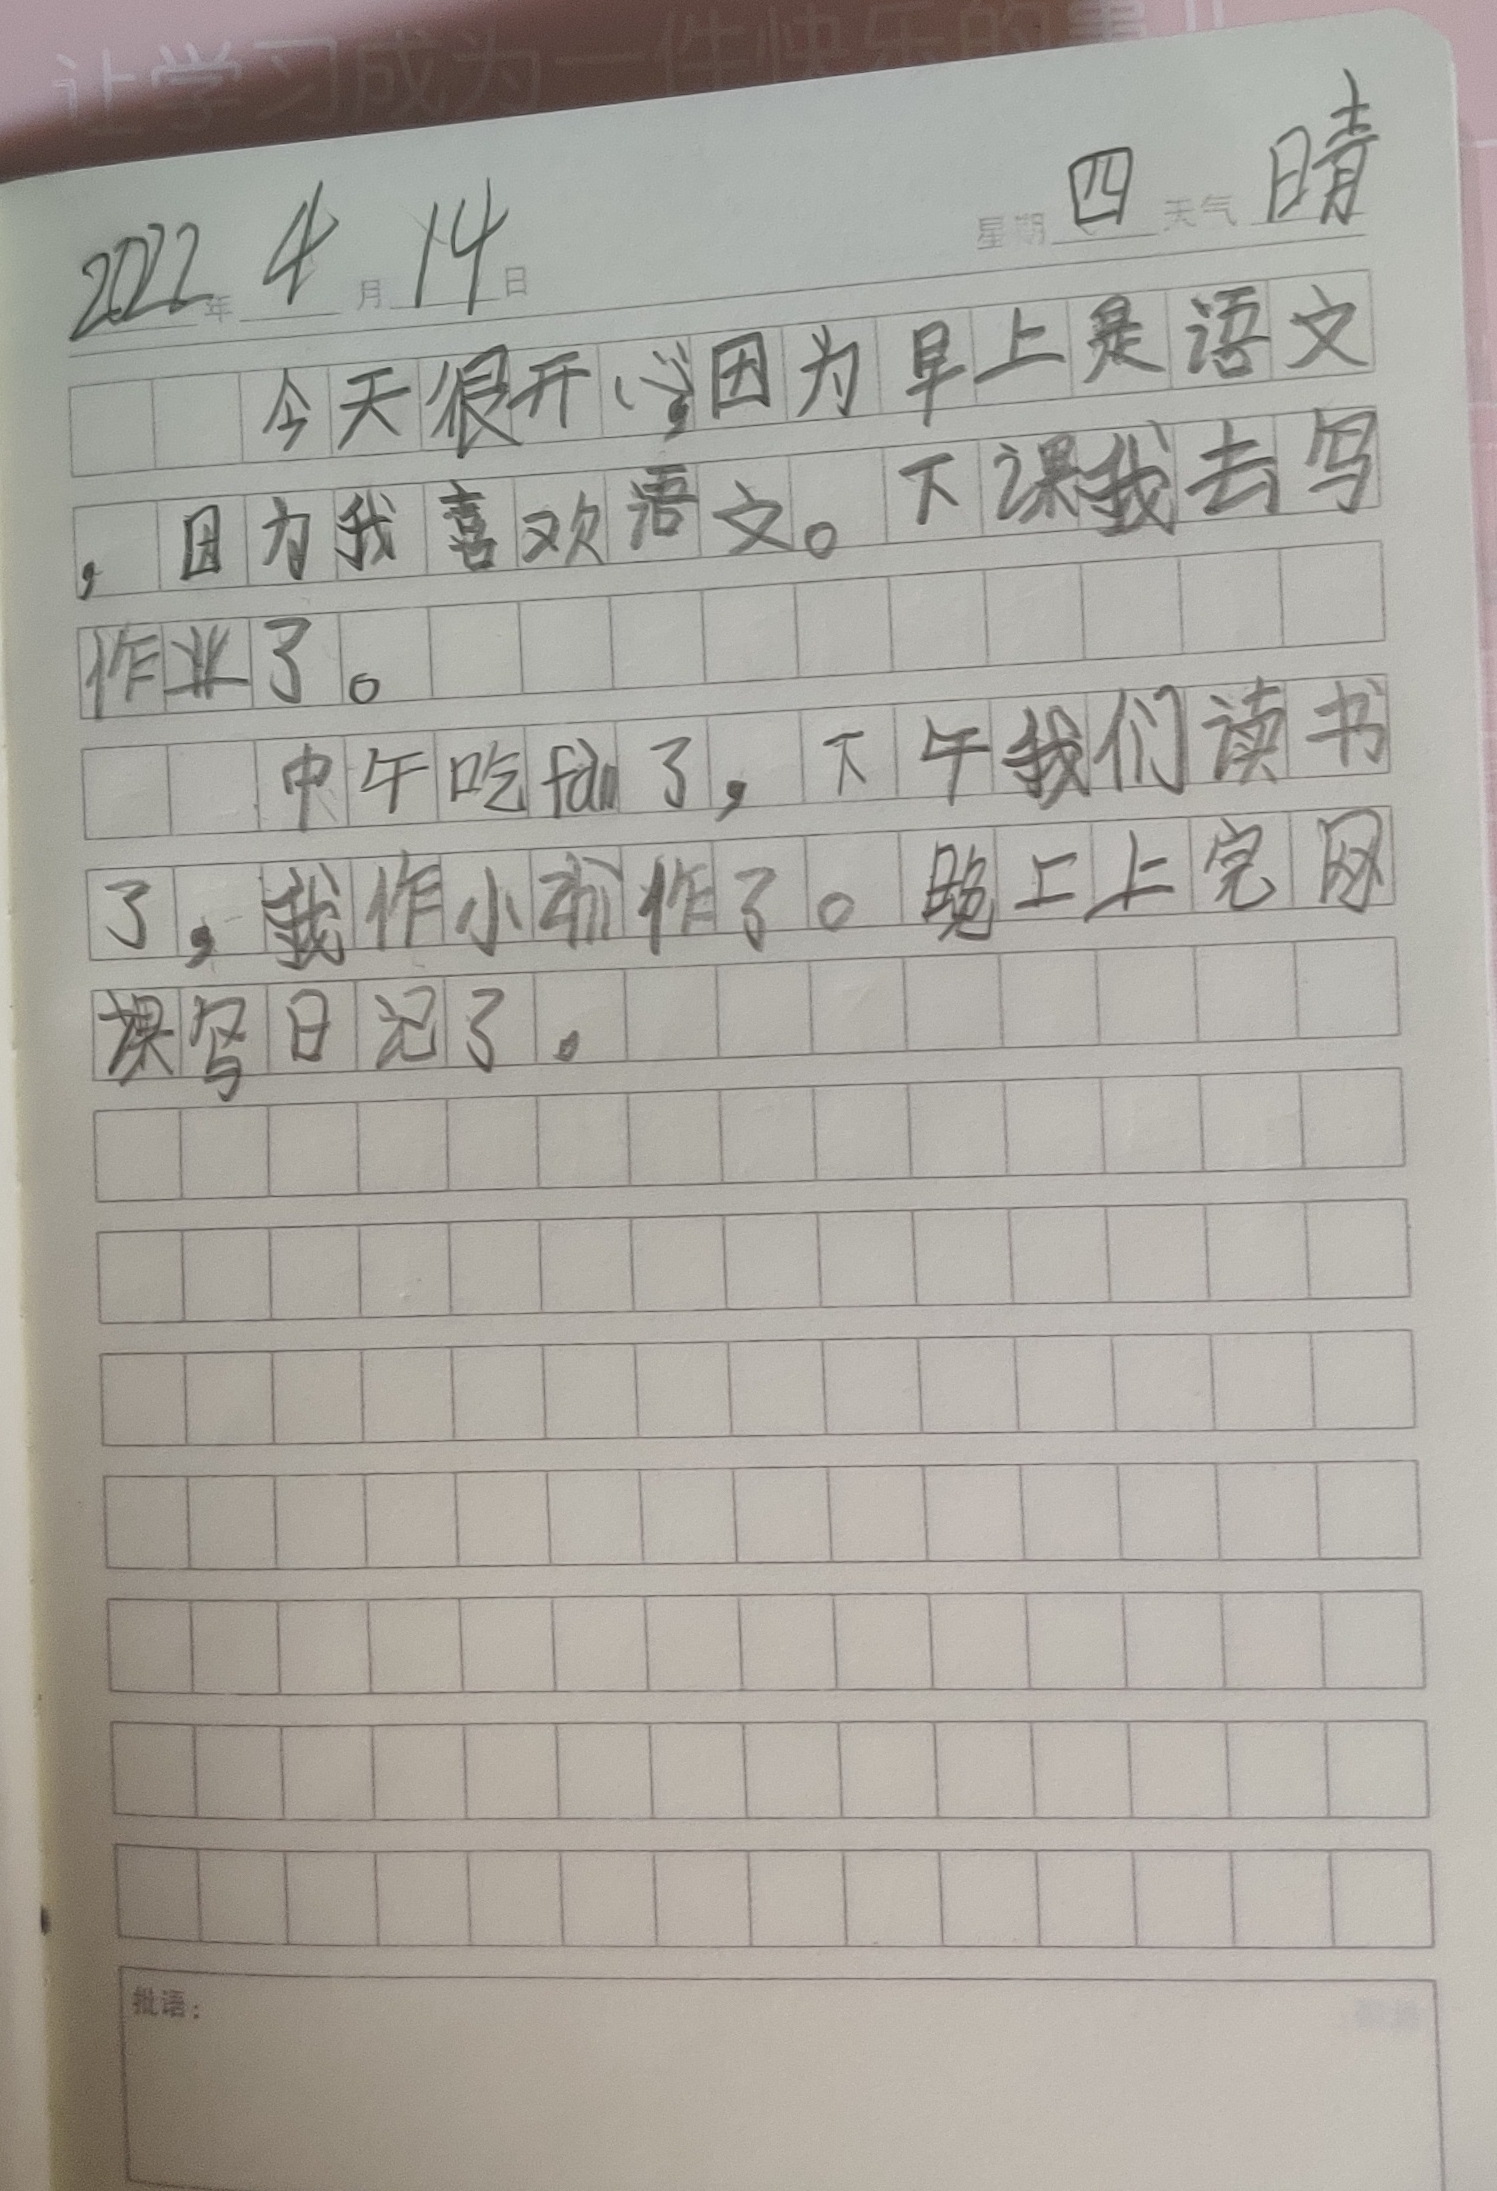 让学习成为一件快乐的事
2022年 4月 14日 星期 四 天气 晴
今天很开心,因为早上是语文
,因为我喜欢语文。下课我去写
作业了。
中午吃fàn了,下午我们读书
了,我作小制作了。晚上上完网
课写日记了.
批语: